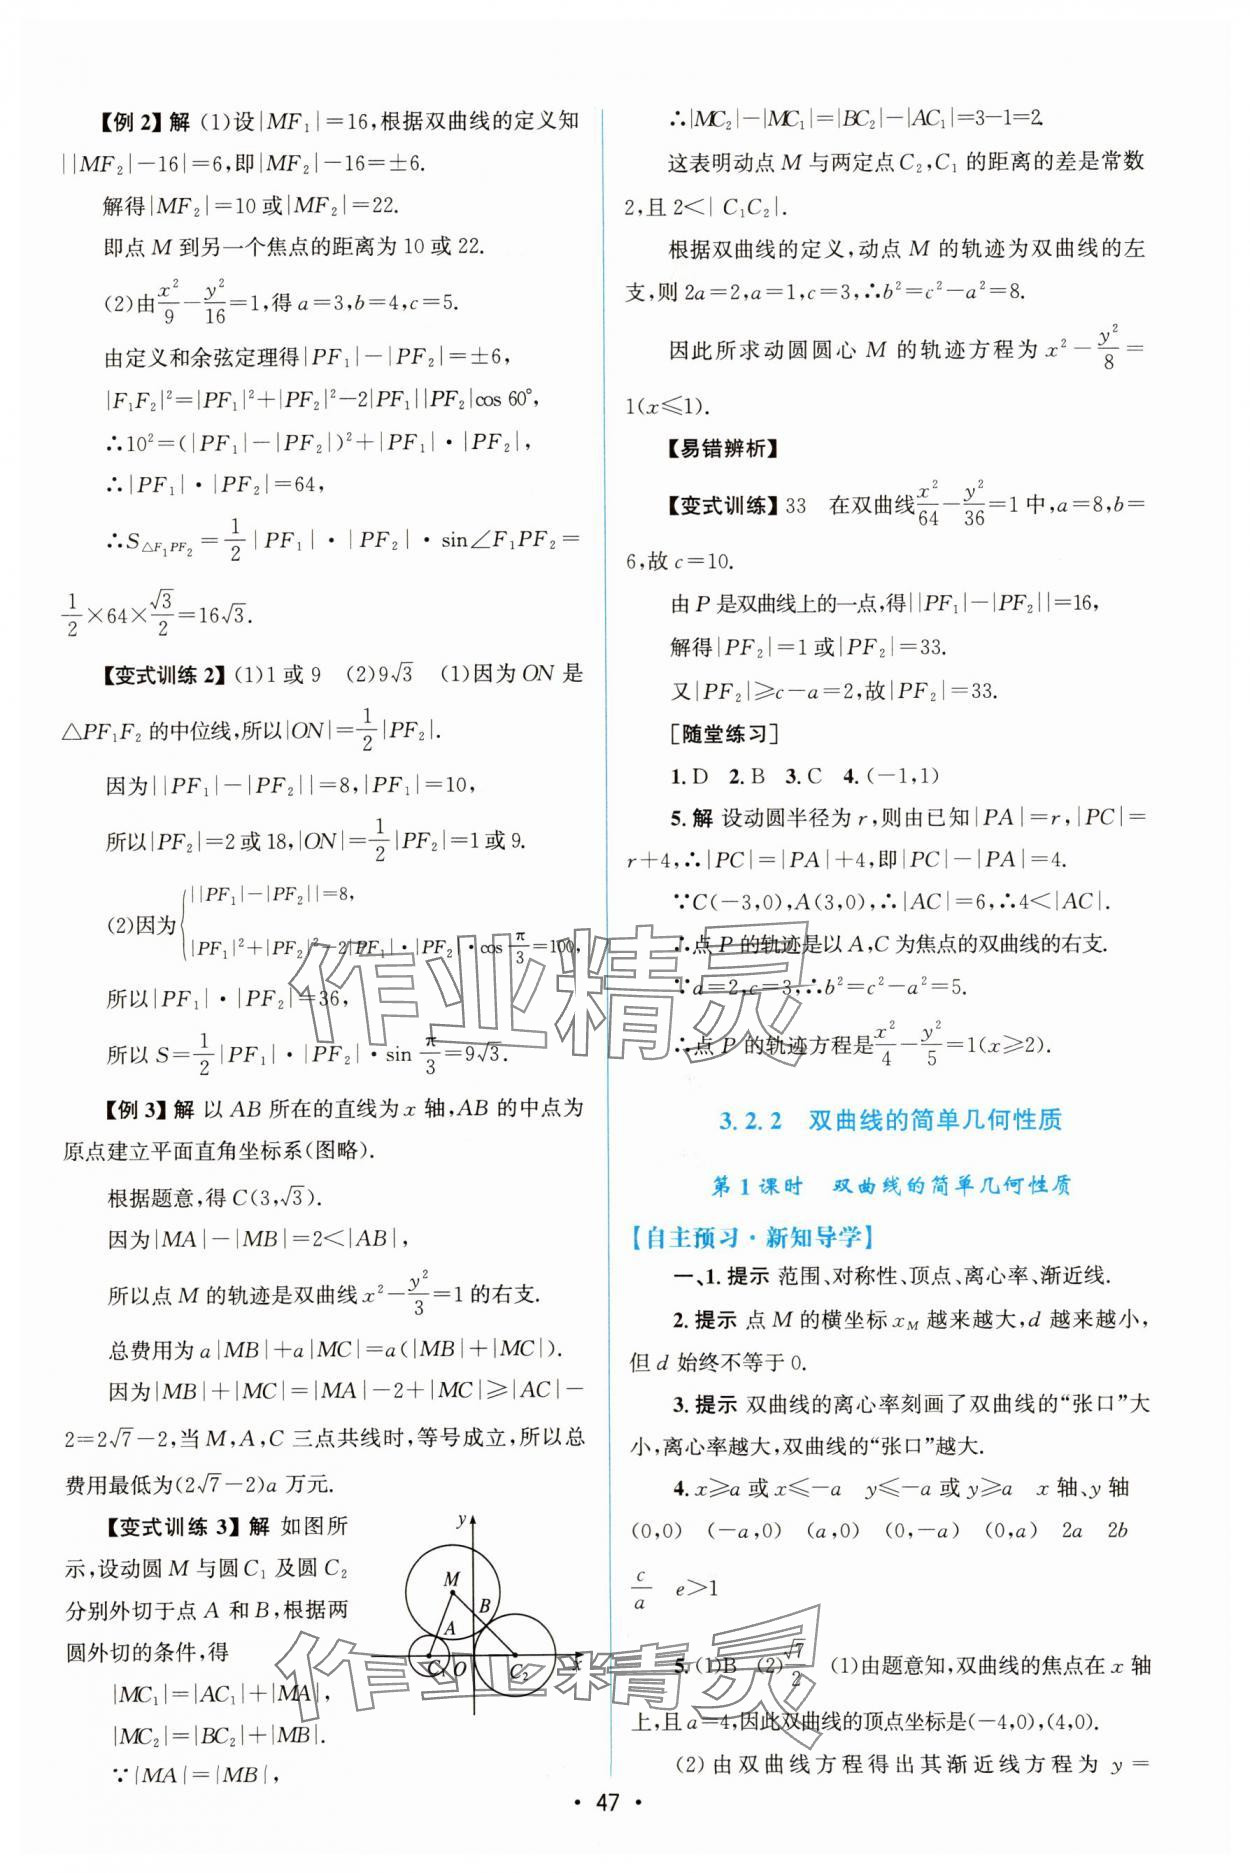 【例2】解 (1)设|MF₁|=16,根据双曲线的定义知
||MF₂|-16|=6,即|MF₂|-16=±6.
解得|MF₂|=10或|MF₂|=22.
即点 M 到另一个焦点的距离为10或22.
(2)由x²/9-y²/16=1,得 a=3,b=4,c=5.
由定义和余弦定理得|PF₁|-|PF₂|=±6,
|F₁F₂|²=|PF₁|²+|PF₂|²-2|PF₁||PF₂|cos 60°,
∴10²=(|PF₁|-|PF₂|)²+|PF₁|·|PF₂|,
∴|PF₁|·|PF₂|=64,
∴S△F₁PF₂=1/2|PF₁|·|PF₂|·sin∠F₁PF₂=
1/2×64×√3/2=16√3.
【变式训练2】(1)1或9 (2)9√3 (1)因为ON是
△PF₁F₂的中位线,所以|ON|=1/2|PF₂|.
因为||PF₁|-|PF₂||=8,|PF₁|=10,
所以|PF₂|=2或18,|ON|=1/2|PF₂|=1或9.
(2)因为{||PF₁|-|PF₂||=8,
|PF₁|²+|PF₂|²-2|PF₁|·|PF₂|·cos π/3=100,
所以|PF₁|·|PF₂|=36,
所以 S=1/2|PF₁|·|PF₂|·sin π/3=9√3.
【例3】解 以AB所在的直线为x轴,AB的中点为
原点建立平面直角坐标系(图略).
根据题意,得C(3,√3).
因为|MA|-|MB|=2<|AB|,
所以点M的轨迹是双曲线x²-y²/3=1的右支.
总费用为a|MB|+a|MC|=a(|MB|+|MC|).
因为|MB|+|MC|=|MA|-2+|MC|≥|AC|-
2=2√7-2,当M,A,C三点共线时,等号成立,所以总
费用最低为(2√7-2)a万元.
【变式训练3】解 如图所
示,设动圆M与圆C₁及圆C₂
分别外切于点A和B,根据两
圆外切的条件,得
|MC₁|=|AC₁|+|MA|,
|MC₂|=|BC₂|+|MB|.
∵|MA|=|MB|,
y
M
B
A
C₁
O
C₂
x
∴|MC₂|-|MC₁|=|BC₂|-|AC₁|=3-1=2.
这表明动点M与两定点C₂,C₁的距离的差是常数
2,且2<|C₁C₂|.
根据双曲线的定义,动点M的轨迹为双曲线的左
支,则2a=2,a=1,c=3,∴b²=c²-a²=8.
因此所求动圆圆心M的轨迹方程为x²-y²/8=
1(x≤1).
【易错辨析】
【变式训练】33 在双曲线x²/64-y²/36=1中,a=8,b=
6,故c=10.
由P是双曲线上的一点,得||PF₁|-|PF₂||=16,
解得|PF₂|=1或|PF₂|=33.
又|PF₂|≥c-a=2,故|PF₂|=33.
[随堂练习]
1.D 2.B 3.C 4.(-1,1)
5.解 设动圆半径为r,则由已知|PA|=r,|PC|=
r+4,∴|PC|=|PA|+4,即|PC|-|PA|=4.
∵C(-3,0),A(3,0),∴|AC|=6,∴4<|AC|.
∴点P的轨迹是以A,C为焦点的双曲线的右支.
∵a=2,c=3,∴b²=c²-a²=5.
∴点P的轨迹方程是x²/4-y²/5=1(x≥2).
3.2.2 双曲线的简单几何性质
第1课时 双曲线的简单几何性质
【自主预习·新知导学】
一、1.提示 范围、对称性、顶点、离心率、渐近线.
2.提示 点M的横坐标x_M越来越大,d越来越小,
但d始终不等于0.
3.提示 双曲线的离心率刻画了双曲线的“张口”大
小,离心率越大,双曲线的“张口”越大.
4.x≥a或x≤-a y≤-a或y≥a x轴、y轴
(0,0) (-a,0) (a,0) (0,-a) (0,a) 2a 2b
c/a e>1
5.(1)B (2)√7/2 (1)由题意知,双曲线的焦点在x轴
上,且a=4,因此双曲线的顶点坐标是(-4,0),(4,0).
(2)由双曲线方程得出其渐近线方程为y=
作业精灵
作业精灵
· 47 ·